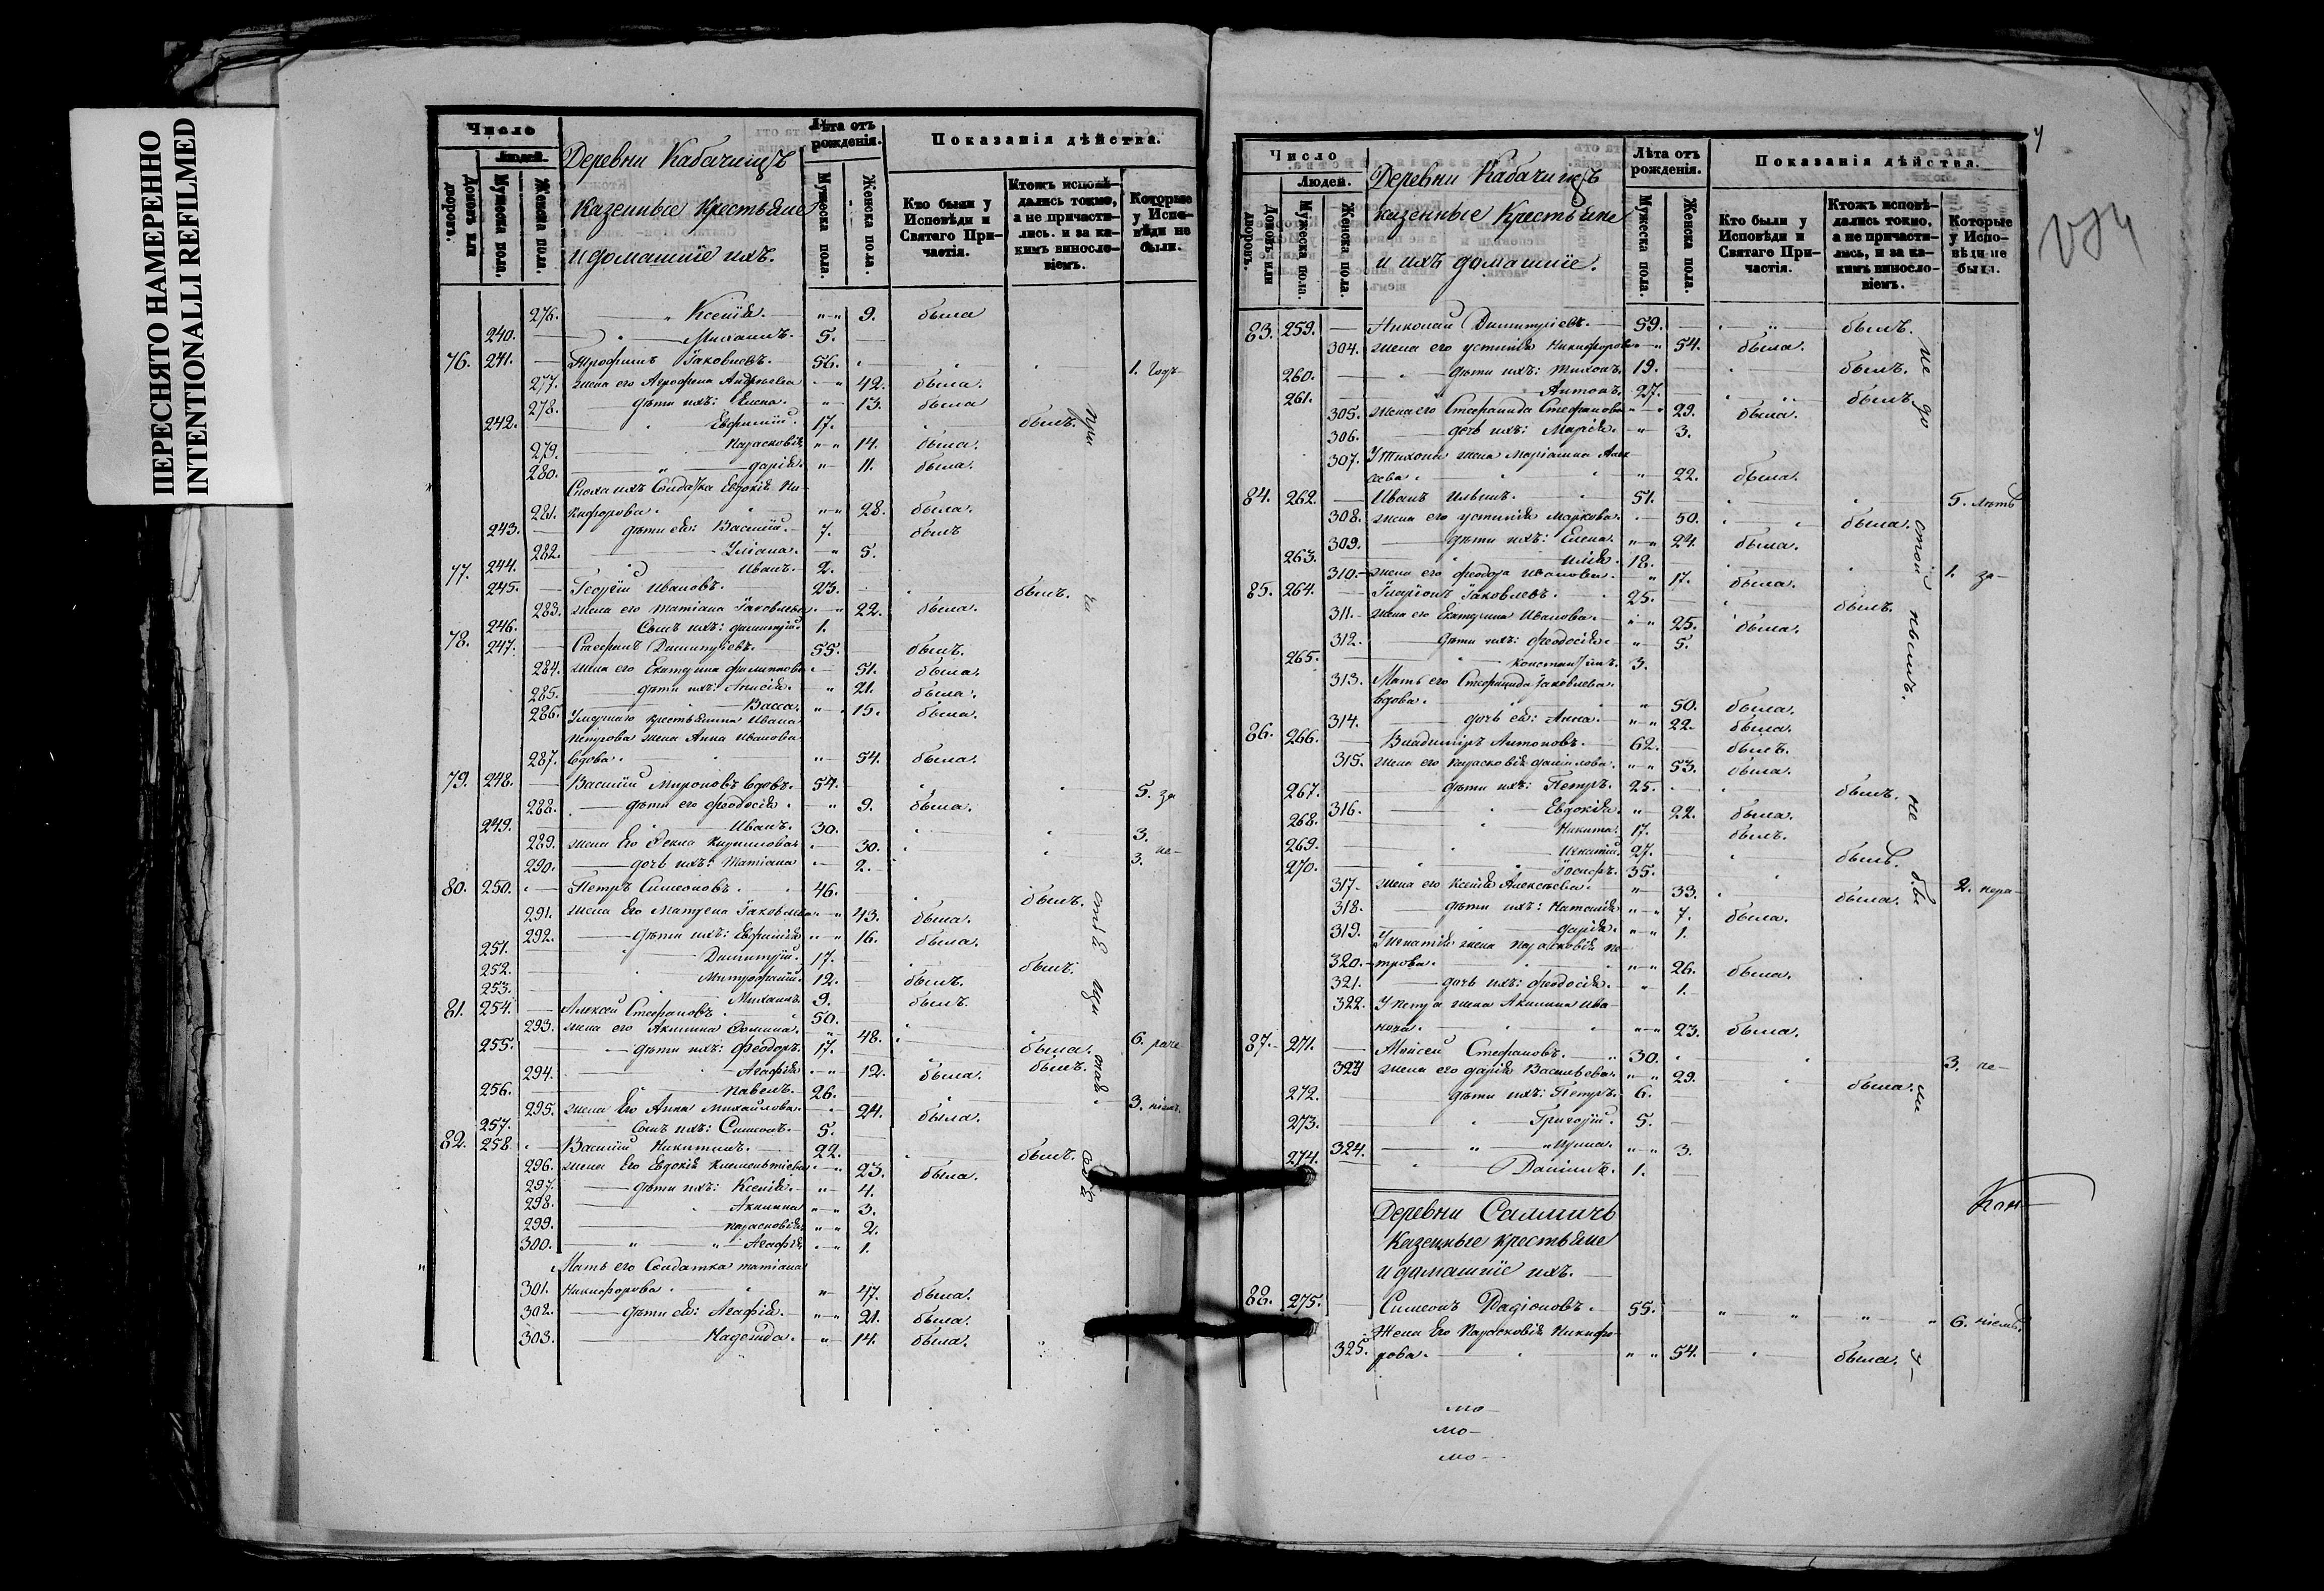 ПЕРЕСНЯТО НАМЕРЕННО
INTENTIONALLI REFILMED
Число
Людей.
Домовъ или дворовъ.
Мужеска пола.
Женска пола.
Деревни Кабачищъ
казенные Крестьяне
и домашніе ихъ.
Лѣта отъ рожденія.
Мужеска пола.
Женска пола.
Показанія дѣйства.
Кто были у Исповѣди и Святаго Причастія.
Ктожъ исповѣдались токмо, а не причастились. и за какимъ винословіемъ.
Которые у Исповѣди не были.
276. Ксенія. 9. была
240. Михаилъ. 5.
76. 241. Трофимъ Іаковлевъ. 56. 1. годъ
277. жена его Агрофена Андреева 42. была.
278. дѣти ихъ: Елена. 13. была
242. Евфимій. 17. былъ.
279. Парасковія 14. была.
280. Дарія. 11. была.
Сноха ихъ Солдатка Евдокія Ни-
281. кифорова. 28. была.
243. дѣти ея: Василій. 7. былъ
282. Уліана. 5.
244. Иванъ. 2.
77. 245. Георгій Ивановъ. 23. былъ.
283. жена его Татіана Іаковлева 22. была.
246. Сынъ ихъ: Димитрій. 1.
78. 247. Стефанъ Димитріевъ. 55. былъ.
284. жена его Екатерина Филиппова 51. была.
285. дѣти ихъ: Анисія. 21. была.
286. Васса. 15. была.
Умершаго крестьянина Ивана
Петрова жена Анна Иванова
287. вдова. 54. была.
79. 248. Василій Мироновъ вдовъ. 54. 5. за
288. дѣти его Феодосія. 9. была.
249. Иванъ. 30. 3.
289. жена Его Фекла Кириллова 30. не-
290. дочь ихъ: Татіана 2. 3.
80. 250. Петръ Симеоновъ. 46. былъ.
291. жена Его Матрена Іаковлева 43. была.
292. дѣти ихъ: Евфимія 16. была.
251. Димитрій. 17. былъ.
252. Митрофаній. 12. былъ.
253. Михаилъ. 9. былъ.
81. 254. Алексей Стефановъ 50. 6. раче
293. жена его Акилина Фомина. 48. была.
255. дѣти ихъ: Феодоръ. 17. былъ.
294. Агафія 12. была.
256. Павелъ. 26. 3. ніемъ.
295. жена Его Анна Михайлова. 24. была.
257. Сынъ ихъ: Симеонъ. 5.
82. 258. Василій Никитинъ. 22. былъ.
296. жена Его Евдокія Клементіева 23. была.
297. дѣти ихъ: Ксенія. 4.
298. Акилина 3.
299. Парасковія 2.
300. Агафія 1.
Мать его Солдатка Татіана
301. Никифорова. 47. была.
302. дѣти ея: Агафія. 21. была.
303. Надежда. 14. была.
Число
Людей.
Домовъ или дворовъ.
Мужеска пола.
Женска пола.
Деревни Кабачищъ
казенные Крестьяне
и ихъ домашніе.
Лѣта отъ рожденія.
Мужеска пола.
Женска пола.
Показанія дѣйства.
Кто были у Исповѣди и Святаго Причастія.
Ктожъ исповѣдались токмо, а не причастились, и за какимъ винословіемъ.
Которые у Исповѣди не были.
83. 259. Николай Димитріевъ. 59. былъ.
304. жена его Устинія Никифорова 54. была.
260. дѣти ихъ: Тихонъ. 19. былъ.
261. Антонъ. 27. былъ.
305. жена его Стефанида Стефанова 29. была.
306. дочь ихъ: Марія. 3.
307. У Тихона жена Маріанна Алек
сеева. 22. была.
84. 262. Иванъ Ильинъ. 51. 5. лѣтъ
308. жена его Устинія Маркова. 50. была.
309. дѣти ихъ: Елена. 24. была.
263. Илія. 18. 1. за-
310. жена его Феодора Иванова. 17. была.
85. 264. Иларіонъ Іаковлевъ. 25. былъ.
311. жена его Екатерина Иванова. 25. была.
312. дѣти ихъ: Феодосія. 5.
265. Константинъ. 3.
313. Мать его Стефанида Іаковлева
вдова. 50. была.
314. дочь ея: Анна. 22. была.
86. 266. Владиміръ Антоновъ. 62. былъ.
315. жена его Парасковія Даніилова. 53. была.
267. дѣти ихъ: Петръ. 25. былъ.
316. Евдокія. 22. была.
268. Никита. 17. былъ.
269. Игнатій. 27. былъ.
270. Іосифъ. 35. 2. нера-
317. жена его Ксенія Алексѣева. 33. была.
318. дѣти ихъ: Наталія 7. была.
319. Дарія. 1.
У Игнатія жена Парасковія Пе-
320. трова. 26. была.
321. дочь ихъ: Феодосія. 1.
322. У Петра жена Акилина Ива-
нова. 23. была.
87. 271. Моисей Стефановъ. 30. 3. не-
323 жена его Дарія Васильева. 29. была.
272. дѣти ихъ: Петръ. 6.
273. Григорій. 5.
324. Ирина. 3.
274. Даніилъ. 1.
Деревни Саммичъ
Казенные крестьяне
и домашніе ихъ.
88. 275. Симеонъ Радіоновъ. 55. 6. ніемъ.
Жена Его Парасковія Никифо-
325. рова. 54. была.
мо-
мо-
мо-